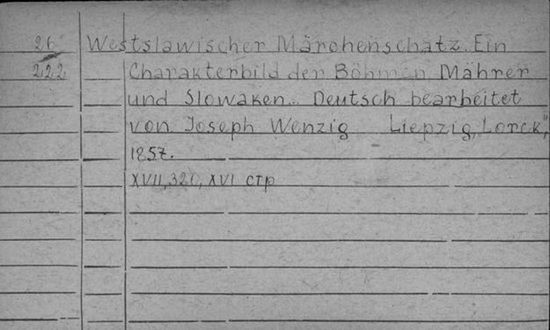 26 Westslawischer Märchenschatz. Ein
222 Charakterbild der Böhmen, Mährer
und Slowaken.. Deutsch bearbeitet
von Joseph Wenzig Liepzig, Lorck,
1857.
XVII, 320, XVI стр